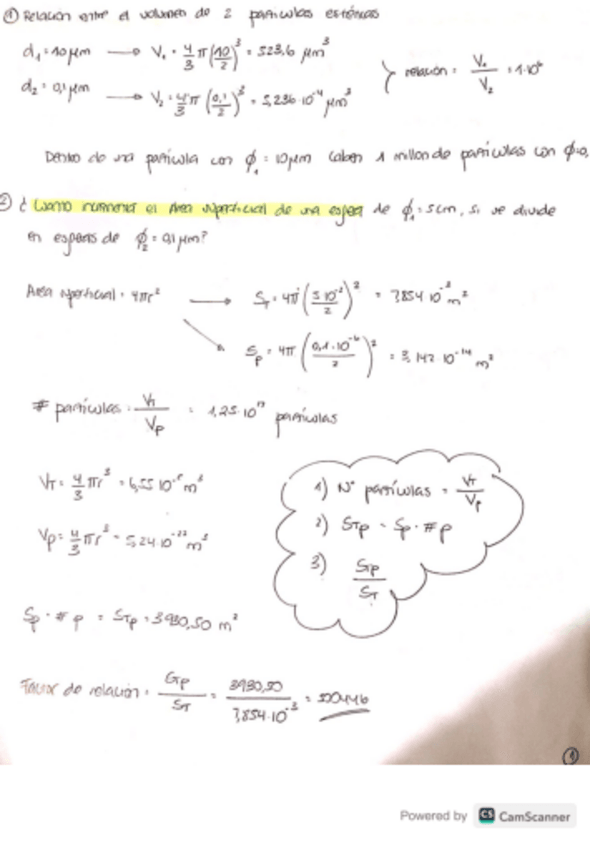 ① Relación entre el volumen de 2 partículas esféricas
d₁ = 10 μm → V₁ = 4/3 π (10/2)³ = 523,6 μm³
d₂ = 0,1 μm → V₂ = 4/3 π (0,1/2)³ = 5,236·10⁻⁴ μm³
relación = V₁/V₂ = 1·10⁶
Dentro de una partícula con ϕ₁ = 10 μm caben 1 millon de partículas con ϕ=0,
② ¿Cuanto aumenta el área superficial de una esfera de ϕ₁ = 5cm, si se divide
en esferas de ϕ₂ = 0,1 μm?
Area superficial = 4πr² → S_T = 4π (5·10⁻²/2)² = 7,854·10⁻³ m²
S_p = 4π (0,1·10⁻⁶/2)² = 3,142·10⁻¹⁴ m²
# partículas = V_T/V_p = 1,25·10¹⁷ partículas
V_T = 4/3 πr³ = 6,55·10⁻⁵ m³
V_p = 4/3 πr³ = 5,24·10⁻²² m³
1) Nº partículas = V_T/V_p
2) S_Tp = S_p · #p
3) S_Tp/S_T
S_p · #p = S_Tp = 3930,50 m²
Factor de relación = S_Tp/S_T = 3930,50/7,854·10⁻³ =
①
Powered by CS CamScanner